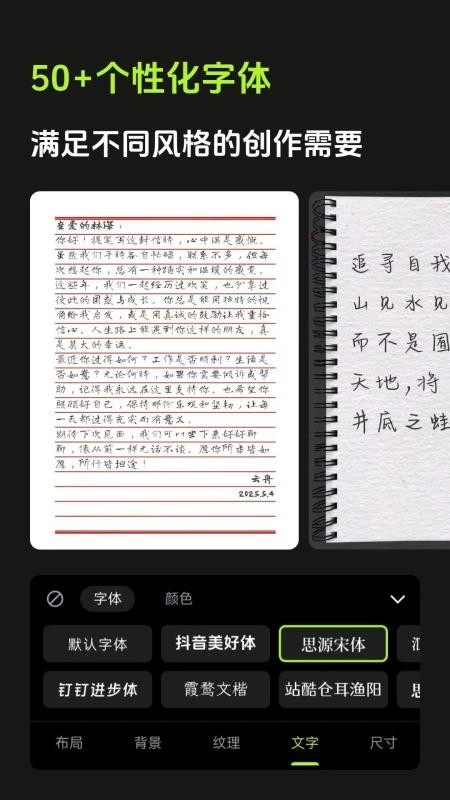 50+个性化字体
满足不同风格的创作需要
亲爱的林深:
你好!提笔写这封信时,心中满是感慨。
虽然我们平时各自忙碌,联系不多,但每
次想起你,总有一种踏实和温暖的感觉。
这些年,我们一起经历过欢笑,也分享过
彼此的困惑与成长。你总是能用独特的视
角给我启发,或是用真诚的鼓励让我重拾
信心。人生路上能遇到你这样的朋友,真
是莫大的幸运。
最近你过得如何?工作是否顺利?生活是
否如意?无论何时,如果你需要倾诉或帮
助,记得我永远在这里支持你。也希望你
照顾好自己,保持那份乐观和坚韧,让每
一天都过得充实而有意义。
期待下次见面,我们可以坐下来好好聊
聊,像从前一样无话不谈。愿你所求皆如
愿,所行皆坦途!
云舟
2025.5.4
追寻自我
山见水见
而不是囿
天地,将
井底之蛙
字体
颜色
默认字体
抖音美好体
思源宋体
钉钉进步体
霞鹜文楷
站酷仓耳渔阳
布局
背景
纹理
文字
尺寸